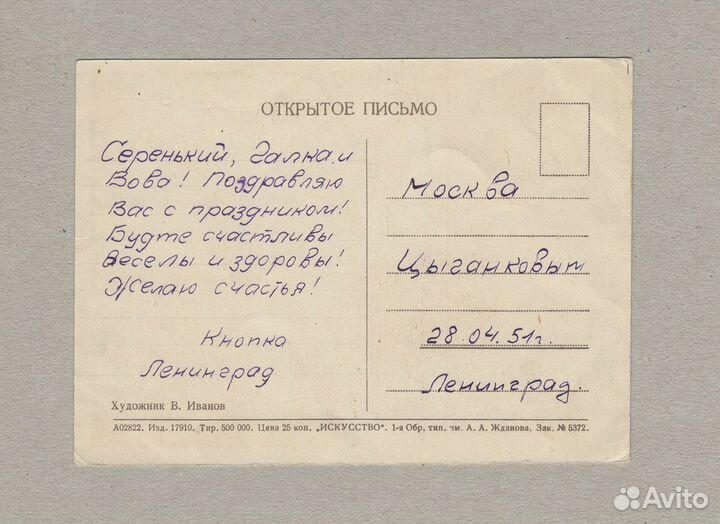 ОТКРЫТОЕ ПИСЬМО
Серенький, Галка и
Вова! Поздравляю
Вас с праздником!
Будте счастливы
Веселы и здоровы!
Желаю счастья!
Кнопка
Ленинград
Художник В. Иванов
Москва
Цыганковым
28.04.51г.
Ленинград.
А02822. Изд. 17910. Тир. 500 000. Цена 25 коп. „ИСКУССТВО". 1-я Обр. тип. им. А. А. Жданова. Зак. № 5372.
Avito